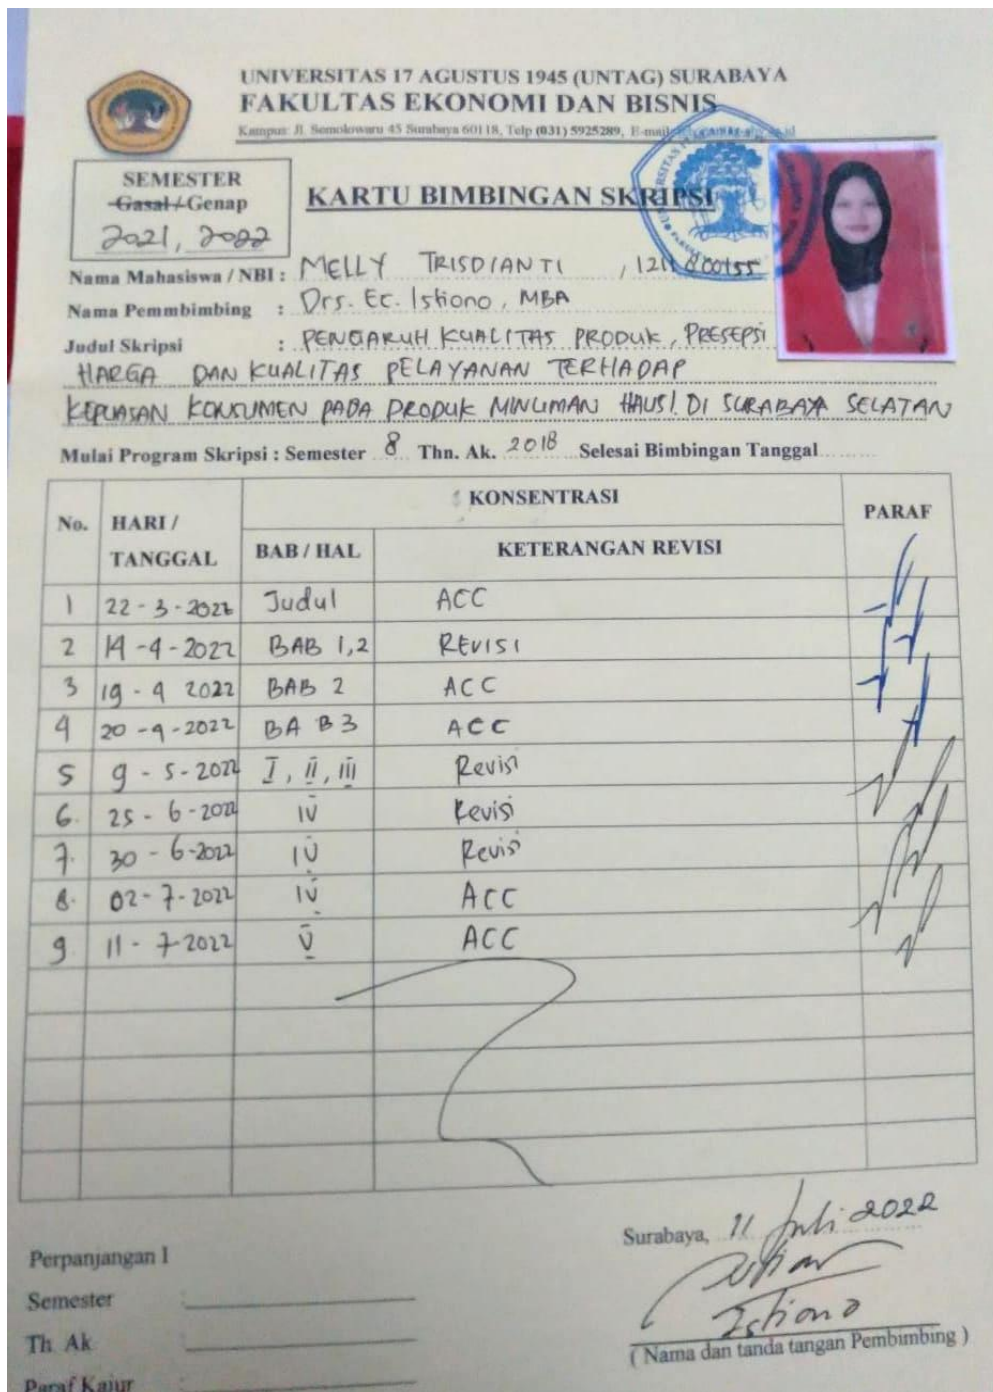 UNIVERSITAS 17 AGUSTUS 1945 (UNTAG) SURABAYA
FAKULTAS EKONOMI DAN BISNIS
Kampus: Jl. Semolowaru 45 Surabaya 60118, Telp (031) 5925289, E-mail
SEMESTER
Gasal / Genap
2021, 2022
KARTU BIMBINGAN SKRIPSI
Nama Mahasiswa / NBI : MELLY TRISDIANTI
Nama Pemmbimbing : Drs. Ec. Istiono, MBA
Judul Skripsi : PENGARUH KUALITAS PRODUK, PRESEPSI
HARGA DAN KUALITAS PELAYANAN TERHADAP
KEPUASAN KONSUMEN PADA PRODUK MINUMAN HAUS! DI SURABAYA SELATAN
Mulai Program Skripsi : Semester 8 Thn. Ak. 2018 Selesai Bimbingan Tanggal
No. HARI / TANGGAL KONSENTRASI PARAF
BAB / HAL KETERANGAN REVISI
1 22 - 3 - 2022 Judul ACC
2 14 - 4 - 2022 BAB 1,2 REVISI
3 19 - 4 2022 BAB 2 ACC
4 20 - 4 - 2022 BAB 3 ACC
5 9 - 5 - 2022 I, II, III Revisi
6. 25 - 6 - 2022 IV Revisi
7. 30 - 6 - 2022 IV Revisi
8. 02 - 7 - 2022 IV ACC
9 11 - 7 - 2022 V ACC
Surabaya, 11 Juli 2022
Istiono
( Nama dan tanda tangan Pembimbing )
Perpanjangan I
Semester :
Th. Ak :
Paraf Kajur :